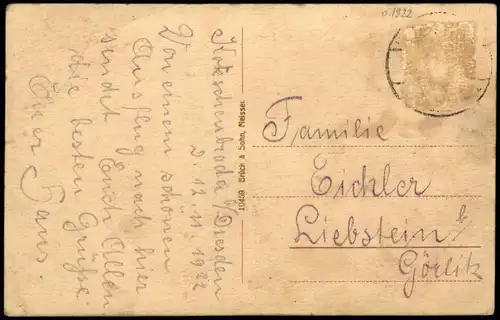 o. 1922
Kötzschenbroda / Dresden
D. 12. 11. 1922
Von einem schönen
Ausflug nach hier
sendet Euch Allen
die besten Grüße
Euer Hans.
10409 Brück & Sohn, Meissen.
Familie
Eichler
Liebstein b/
Görlitz